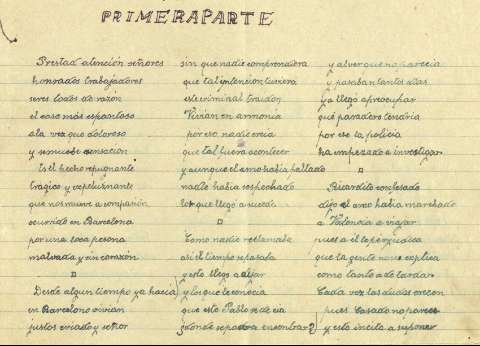 PRIMERA PARTE
Prestad atención señores
honrados trabajadores
seres todos de razón
el caso más espantoso
a la vez que doloroso
y de nuestra sensación
Es el hecho repugnante
tragico y espeluznante
que nos mueve a compasión
ocurrido en Barcelona
por una tosca persona
malvada y sin corazón
Desde algun tiempo ya hacia
en Barcelona vivian
justos criado y señor
sin que nadie comprendiera
que tal intencion tuviera
este criminal traidor
Vivian en armonia
por eso nadie creia
que tal fuera acontecer
y aunque el amo habia faltado
nadie habia sospechado
lo que llegó a suceder
Como nadie reclamaba
asi el tiempo se pasaba
y esto llego a alojar
y los que le conocia
que este Pablo se decia
¿donde se podra encontrar?
y al ver que no parecia
y pasaban tantos dias
ya llegó a preocupar
que paradero tendria
por eso la policia
ha empezado a investigar
Ricardito confesado
dijo el amo habia marchado
a Valencia a viajar
pues a el le perjudica
que la gente no se explica
como tanto a de tardar
Cada vez las dudas crecen
pues Casado no parece
y esto incita a suponer